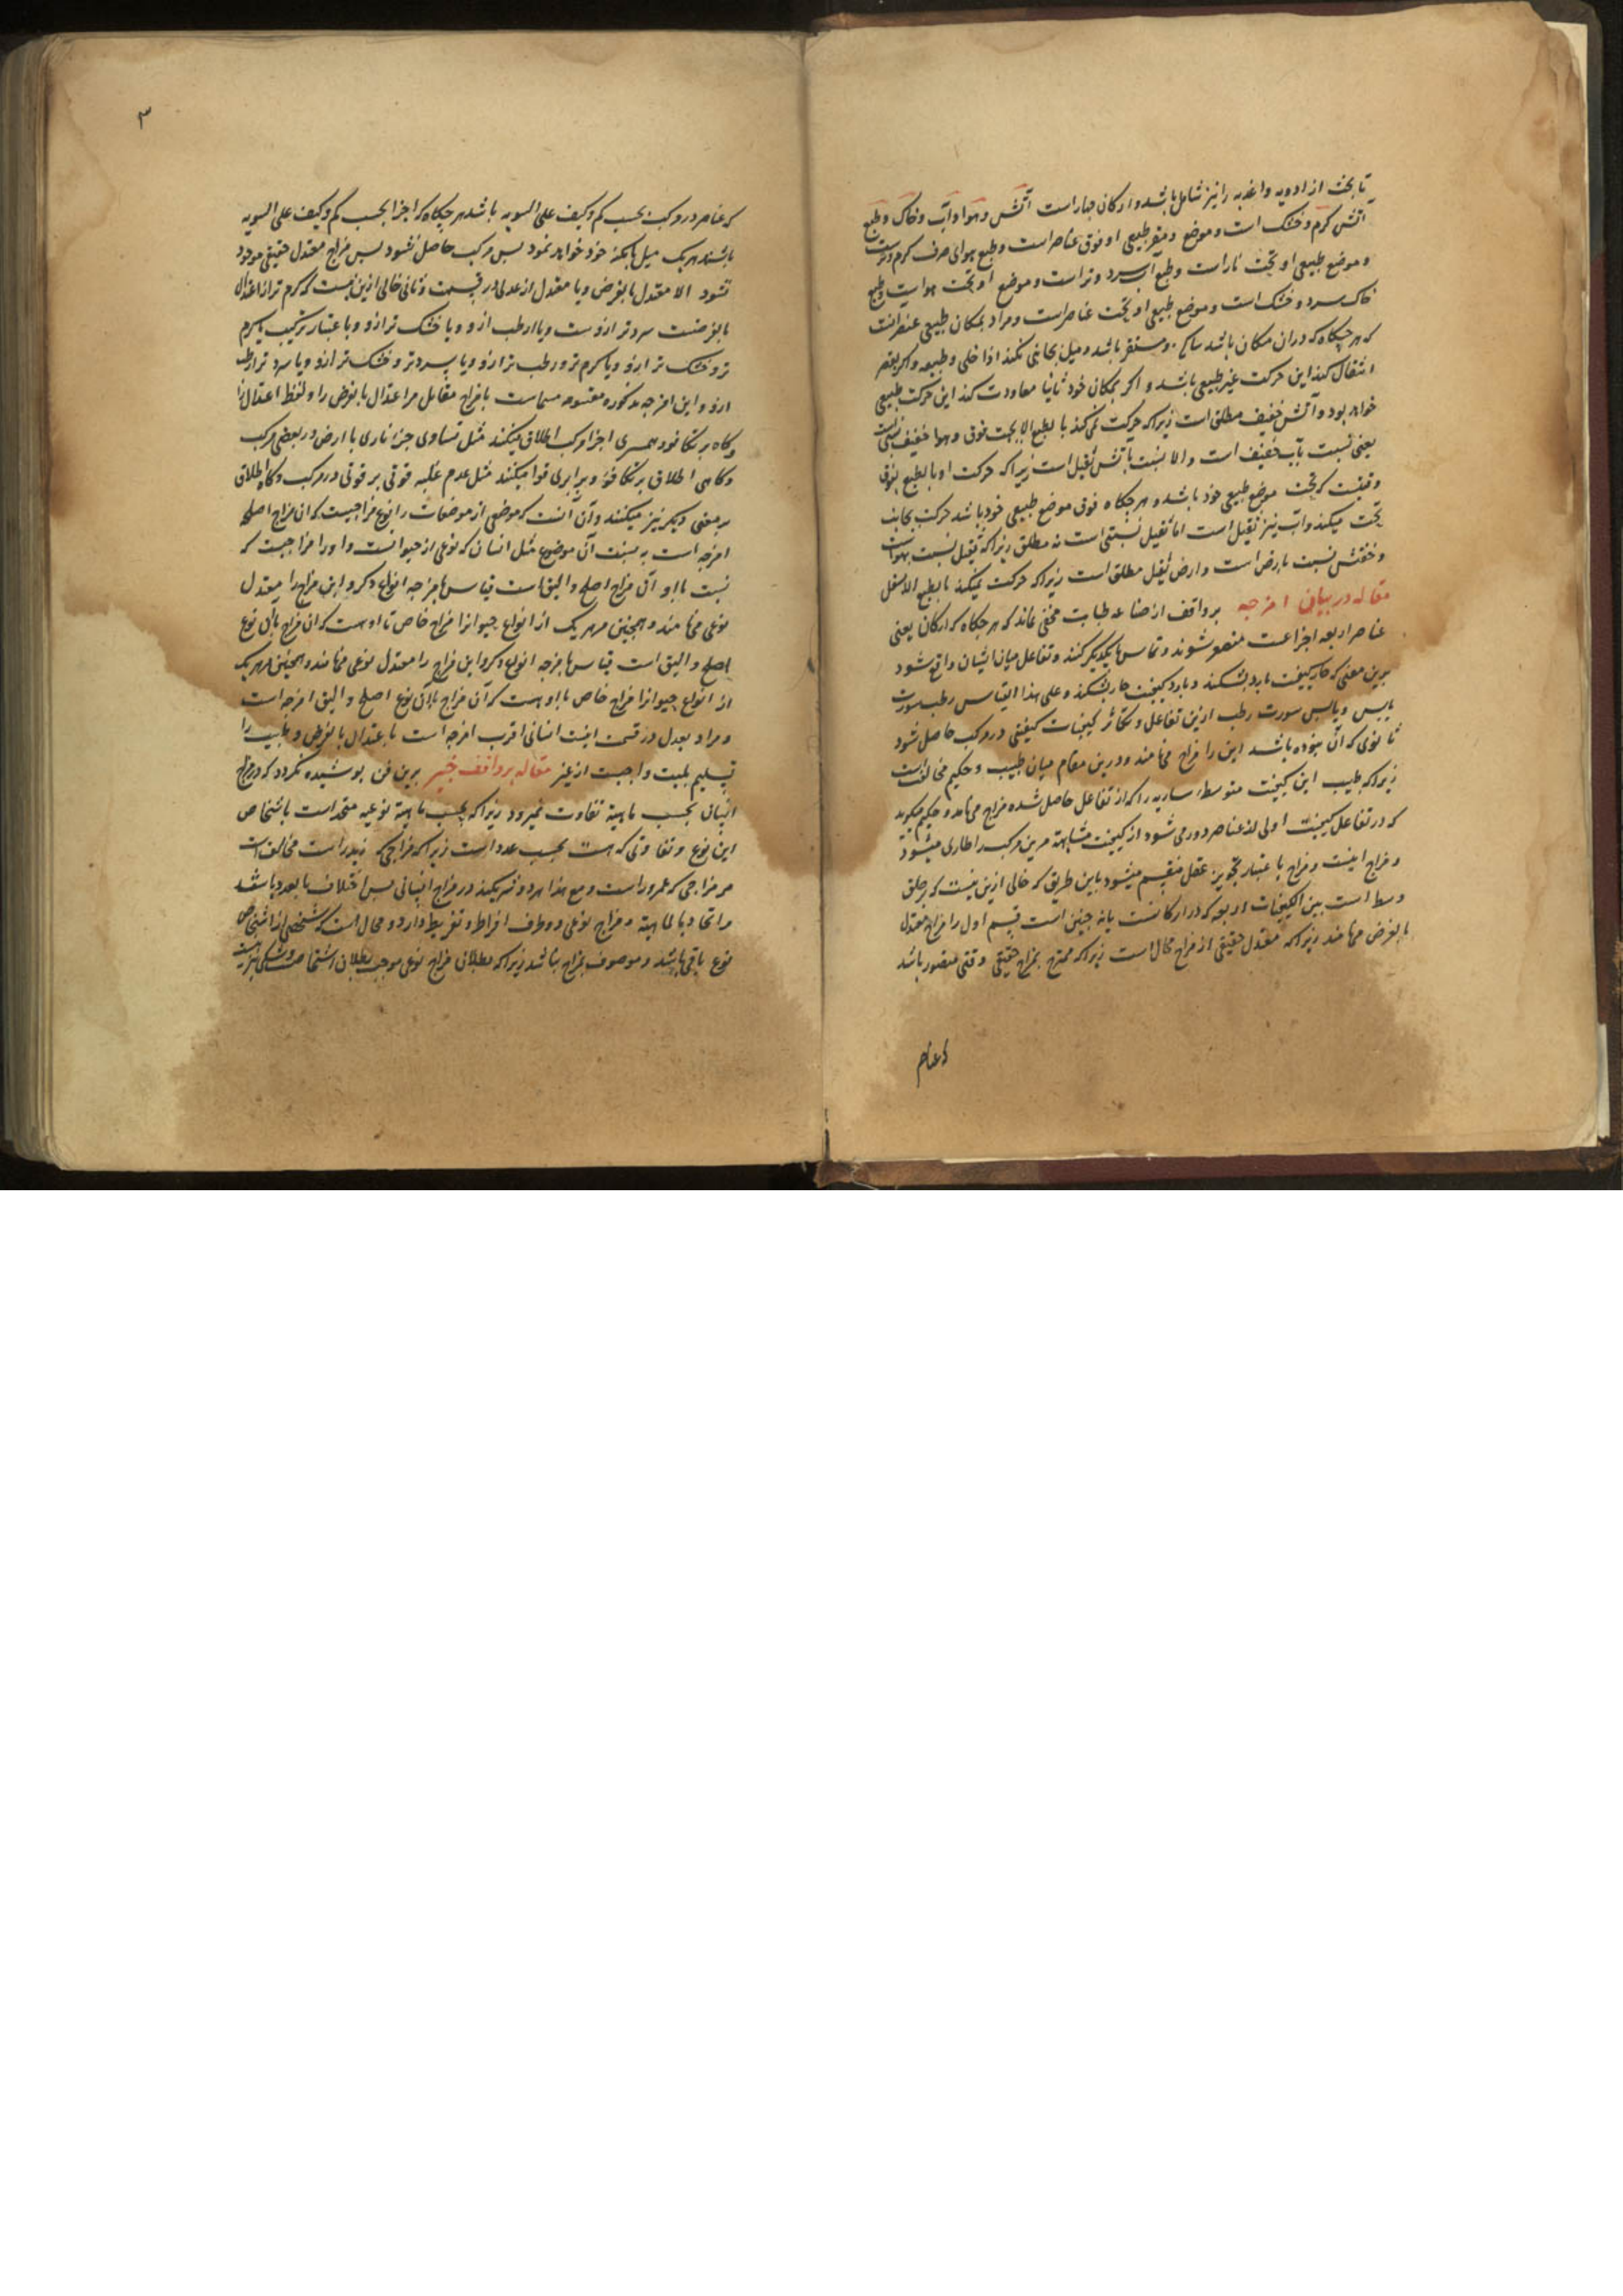 تا بحث از ادویه و اغذیه را نیز شامل باشد و ارکان چهار است آتش و هوا و آب و خاک و طبع
آتش کرم و خشک است و موضع و مقر طبیعی او فوق عناصر است و طبع هوای صرف کرم و تر است
و موضع طبیعی او تحت نار است و طبع آب سرد و تر است و موضع او تحت هواست و طبع
خاک سرد و خشک است و موضع طبیعی او تحت عناصر است و مراد بمکان طبیعی عنصر انست
که هر چکاه که دران مکان باشد ساکن و مستقر باشد و میل بجانبی نکند اذا خلی و طبعه و اکر بقصر
انتقال کند این حرکت غیر طبیعی باشد و اکر بمکان خود ثانیا معاودت کند این حرکت طبیعی
خواهد بود و آتش خفیف مطلق است زیرا که حرکت نمی کند بالطبع الا بجهت فوق و هوا خفیف نسبی است
یعنی نسبت بآب خفیف است و الا نسبت بآتش ثقیل است زیرا که حرکت او بالطبع بفوق
وقتیست که تحت موضع طبیعی خود باشد و هر چکاه فوق موضع طبیعی خود باشد حرکت بجانب
تحت میکند و آب نیز ثقیل است اما ثقیل نسبتی است نه مطلق زیرا که ثقیل نسبت بهواست
و خفتش نسبت بارض است و ارض ثقیل مطلق است زیرا که حرکت نمیکند بالطبع الا اسفل
مقاله در بیان امزجه بر واقف از صناعه طبابت مخفی نماند که هر چکاه که ارکان یعنی
عناصر اربعه اجزاعت متصغر شوند و تماس بایکدیکر کنند و تفاعل میان ایشان واقع شود
برین معنی که حار کیفیت بارد بشکند و بارد کیفیت حار بشکند و علی هذا القیاس رطب سورت
یابس و یابس سورت رطب ازین تفاعل و تکاثر کیفیات کیفیتی در مرکب حاصل شود
تا نوی که آن نبوده باشد این را مزاج می نامند و درین مقام میان طبیب و حکیم مخالفت است
زیرا که طبیب این کیفیت متوسطه ساریه را که از تفاعل حاصل شده مزاج می نامد و حکیم میکوید
که در تفاعل کیفیت اولی از عناصر دور می شود از کیفیت متشابهة مرین مرکب را طاری میشود
و مزاج اینست و مزاج با عتبار تجویز عقل منقسم میشود باین طریق که خالی ازین نیست که بر حاق
وسط است بین الکیفیات اربعه که در ارکانست یا نه چنین است قسم اول را مزاج معتدل
بالفرض می نامند زیرا که معتدل حقیقی از مزاج محال است زیرا که ممتزج بمزاج حقیقی وقتی متصور باشد
که عناصر
۳
که عناصر در مرکب بحسب کم و کیف علی السویه باشد هر چکاه که اجزا بحسب کم و کیف علی السویه
باشند هر یک میل بامکنه خود خواهد نمود پس مرکب حاصل نشود پس مزاج معتدل حقیقی موجود
نشود الا معتدل بالفرض و یا معتدل از عدل در قسمت و ثانی خالی ازین نیست که کرم تر از اعتدال
بالفرضست سردتر ازوست و یا ارطب ازو و یا خشک تر ازو و با عتبار ترکیب یا کرم
تر و خشک تر ازو و یا کرم تر و رطب تر ازو و یا سردتر و خشک تر ازو و یا سرد تر ارطب
ازو و این امزجه مذکوره مقسومه مسماست بامزاج مقابل مر اعتدال بالفرض را و لفظ اعتدال را
و کاه بر تکافو و همسری اجزا مرکب اطلاق میکنند مثل تساوی جزا ناری با ارض در بعضی مرکب
و کاهی اطلاق بر تکافو و برابری قوا میکنند مثل عدم غلبه قوتی بر قوتی در مرکب و کاه اطلاق
بر معنی دیکر نیز میکنند و آن آنست که موضعی از موضعات را نوع مزاجیست که ان مزاج اصلح
امزجه است به نسبت آن موضوع مثل انسان که نوعی از حیوانست و او را مزاجیست که
نسبت با او آن مزاج اصلح و الیق است قیاس بامزجه انواع دکر و این مزاج را معتدل
نوعی می نامند و همچنین مر هر یک از انواع حیوانرا مزاج خاص تا او هست که ان مزاج بان نوع
اصلح و الیق است قیاس بامزجه انواع دکر و این مزاج را معتدل نوعی می نامند و همچنین هر یک
از انواع حیوانرا مزاج خاص با او هست که آن مزاج با آن نوع اصلح و الیق امزجه است
و مراد بعدل در قسمت اینست انسانی اقرب امزجه است با عتدال بالفرض و طبیب را
تسلیم بلمیت واجبست از غیر مقاله بر واقف خبیر برین فن پوشیده نکردد که در مزاج
انسان بحسب ماهیة تفاوت نمیرود زیرا که بحسب ماهیة نوعیه متحد است باشخاص
این نوع و تفاوتی که هست بحسب عدد است زیرا که مزاجی که زید راست مخالف است
مر مزاجی که عمرو راست و مع هذا هر دو شریکند در مزاج انسانی پس اختلاف بالعدد باشد
مر اتحاد بالماهیة و مزاج نوعی دو طرف افراط و تفریط دارد و محال است که شخصی از اشخاص
نوع باقی باشد و موصوف بمزاج نباشد زیرا که بطلان مزاج نوعی موجب بطلان اشخاص